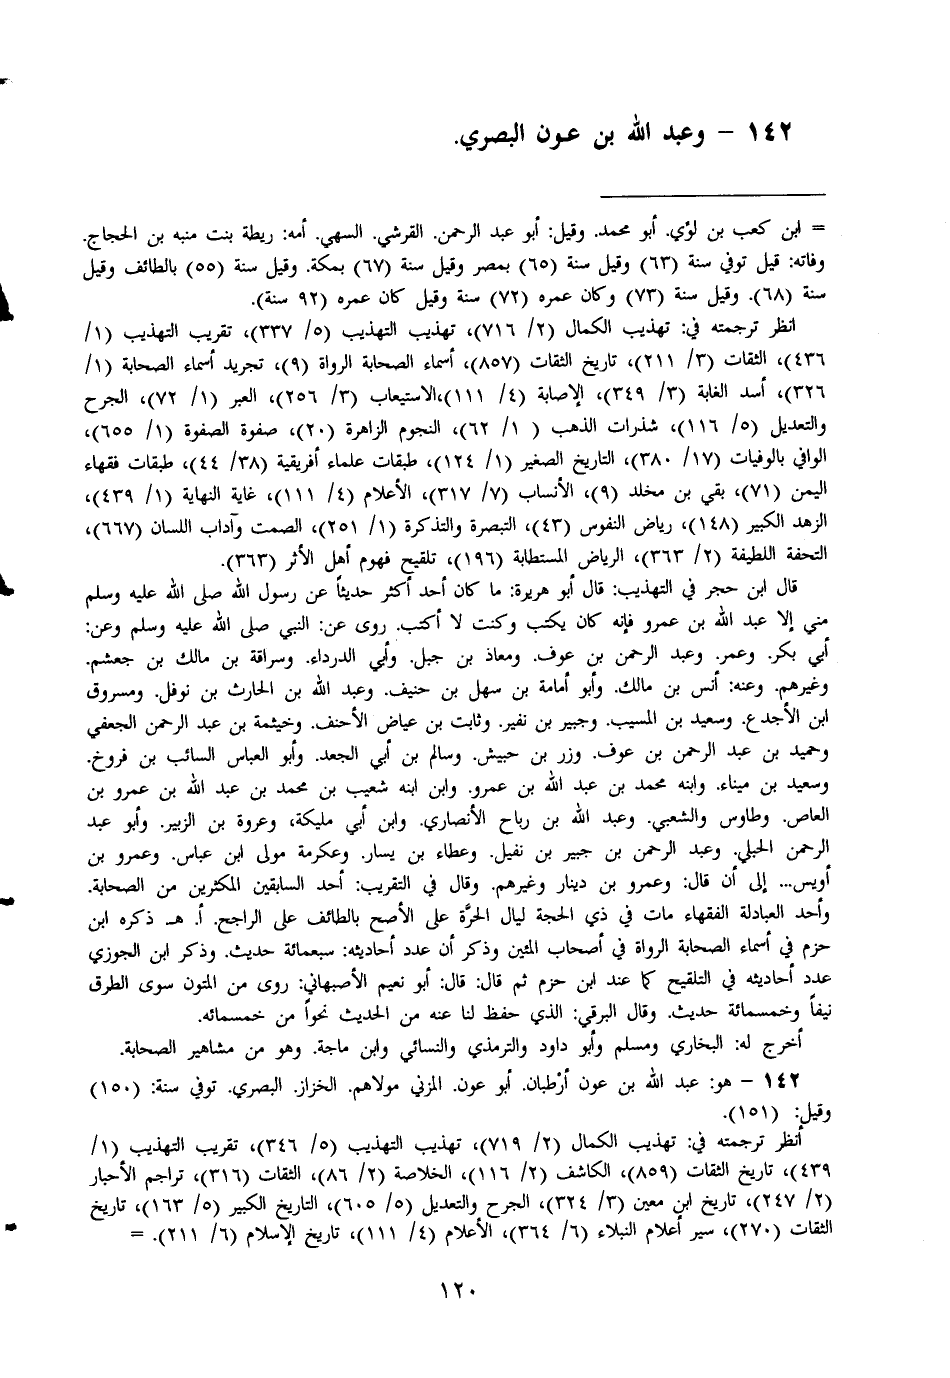 ١٤٢ – وعبد الله بن عون البصري.
= ابن كعب بن لؤي. أبو محمد. وقيل: أبو عبد الرحمن. القرشي. السهي. أمه: ريطة بنت منبه بن الحجاج.
وفاته: قيل توفي سنة (٦٣) وقيل سنة (٦٥) بمصر وقيل سنة (٦٧) بمكة. وقيل سنة (٥٥) بالطائف وقيل
سنة (٦٨). وقيل سنة (٧٣) وكان عمره (٧٢) سنة وقيل كان عمره (٩٢ سنة).
انظر ترجمته في: تهذيب الكمال (٢/ ٧١٦)، تهذيب التهذيب (٥/ ٣٣٧)، تقريب التهذيب (١/
٤٣٦)، الثقات (٣/ ٢١١)، تاريخ الثقات (٨٥٧)، أسماء الصحابة الرواة (٩)، تجريد أسماء الصحابة (١/
٣٢٦)، أسد الغابة (٣/ ٣٤٩)، الإصابة (٤/ ١١١)،الاستيعاب (٣/ ٢٥٦)، العبر (١/ ٧٢)، الجرح
والتعديل (٥/ ١١٦)، شذرات الذهب ( ١/ ٦٢)، النجوم الزاهرة (٢٠)، صفوة الصفوة (١/ ٦٥٥)،
الوافي بالوفيات (١٧/ ٣٨٠)، التاريخ الصغير (١/ ١٢٤)، طبقات علماء أفريقية (٣٨/ ٤٤)، طبقات فقهاء
اليمن (٧١)، بقي بن مخلد (٩)، الأنساب (٧/ ٣١٧)، الأعلام (٤/ ١١١)، غاية النهاية (١/ ٤٣٩)،
الزهد الكبير (١٤٨)، رياض النفوس (٤٣)، التبصرة والتذكرة (١/ ٢٥١)، الصمت وآداب اللسان (٦٦٧)،
التحفة اللطيفة (٢/ ٣٦٣)، الرياض المستطابة (١٩٦)، تلقيح فهوم أهل الأثر (٣٦٣).
قال ابن حجر في التهذيب: قال أبو هريرة: ما كان أحد أكثر حديثاً عن رسول الله صلى الله عليه وسلم
مني إلا عبد الله بن عمرو فإنه كان يكتب وكنت لا أكتب. روى عن: النبي صلى الله عليه وسلم وعن:
أبي بكر. وعمر. وعبد الرحمن بن عوف. ومعاذ بن جبل. وأبي الدرداء. وسراقة بن مالك بن جعشم.
وغيرهم. وعنه: أنس بن مالك. وأبو أمامة بن سهل بن حنيف. وعبد الله بن الحارث بن نوفل. ومسروق
ابن الأجدع. وسعيد بن المسيب. وجبير بن نفير. وثابت بن عياض الأحنف. وخيثمة بن عبد الرحمن الجعفي
وحميد بن عبد الرحمن بن عوف. وزر بن حبيش. وسالم بن أبي الجعد. وأبو العباس السائب بن فروخ.
وسعيد بن ميناء. وابنه محمد بن عبد الله بن عمرو. وابن ابنه شعيب بن محمد بن عبد الله بن عمرو بن
العاص. وطاوس والشعبي. وعبد الله بن رباح الأنصاري. وابن أبي مليكة، وعروة بن الزبير. وأبو عبد
الرحمن الحبلي. وعبد الرحمن بن جبير بن نفيل. وعطاء بن يسار. وعكرمة مولى ابن عباس. وعمرو بن
أويس... إلى أن قال: وعمرو بن دينار وغيرهم. وقال في التقريب: أحد السابقين المكثرين من الصحابة.
وأحد العبادلة الفقهاء مات في ذي الحجة ليال الحرَّة على الأصح بالطائف على الراجح. أ. هـ ذكره ابن
حزم في أسماء الصحابة الرواة في أصحاب المئين وذكر أن عدد أحاديثه: سبعمائة حديث. وذكر ابن الجوزي
عدد أحاديثه في التلقيح كما عند ابن حزم ثم قال: قال: أبو نعيم الأصبهاني: روى من المتون سوى الطرق
نيفاً وخمسمائة حديث. وقال البرقي: الذي حفظ لنا عنه من الحديث نحواً من خمسمائه.
أخرج له: البخاري ومسلم وأبو داود والترمذي والنسائي وابن ماجة. وهو من مشاهير الصحابة.
١٤٢ – هو: عبد الله بن عون أرْطبان. أبو عون. المزني مولاهم. الخزاز. البصري. توفي سنة: (١٥٠)
وقيل: (١٥١).
أنظر ترجمته في: تهذيب الكمال (٢/ ٧١٩)، تهذيب التهذيب (٥/ ٣٤٦)، تقريب التهذيب (١/
٤٣٩)، تاريخ الثقات (٨٥٩)، الكاشف (٢/ ١١٦)، الخلاصة (٢/ ٨٦)، الثقات (٣١٦)، تراجم الأحبار
(٢/ ٢٤٧)، تاريخ ابن معين (٣/ ٣٢٤)، الجرح والتعديل (٥/ ٦٠٥)، التاريخ الكبير (٥/ ١٦٣)، تاريخ
الثقات (٢٧٠)، سير أعلام النبلاء (٦/ ٣٦٤)، الأعلام (٤/ ١١١)، تاريخ الإسلام (٦/ ٢١١). =
١٢٠